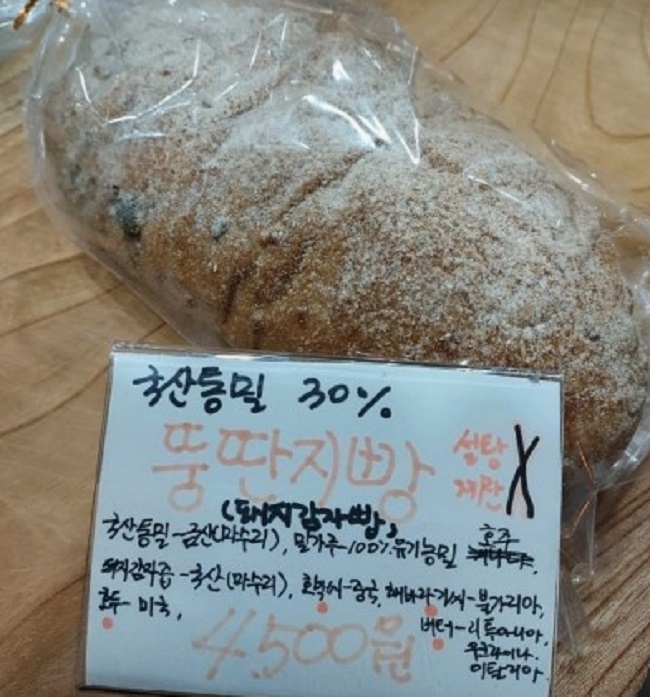 국산통밀 30%
뚱딴지빵
설탕
계란 X
(돼지감자빵)
국산통밀-금산(마수리), 밀가루-100%유기농밀 호주
캐나다,
돼지감자즙-국산(마수리), 호박씨-중국, 해바라기씨-불가리아,
호두-미국,
버터-리투아니아,
우크라이나,
이탈리아.
4,500원